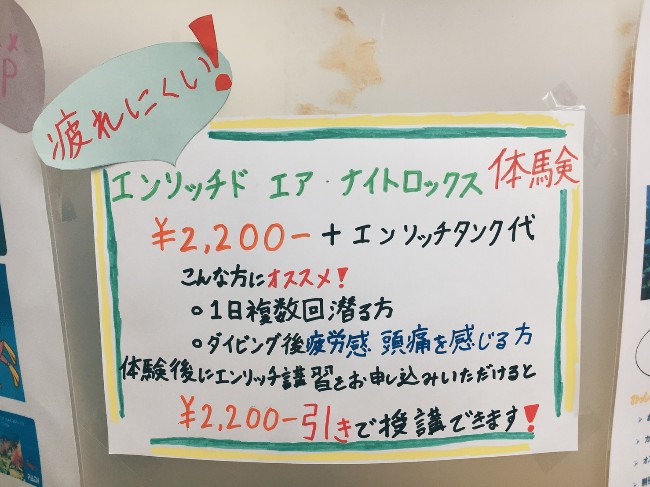 疲れにくい!
エンリッチド エア・ナイトロックス 体験
¥2,200- + エンリッチタンク代
こんな方にオススメ!
○1日複数回潜る方
○ダイビング後疲労感 頭痛を感じる方
体験後にエンリッチ講習をお申し込みいただけると
¥2,200-引きで授講できます!